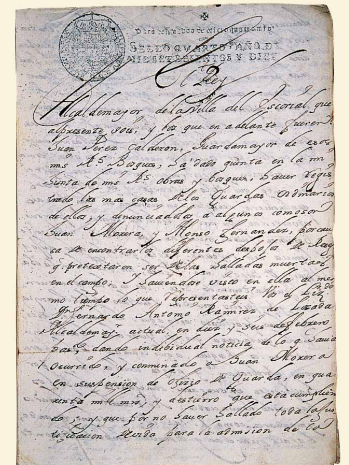 SELLO QUARTO, AÑO DE
MIL SETECIENTOS Y DIEZ
El Rey
Alcalde mayor de la Villa del Escorial, que
al presente sois, y los que en adelante fueren
Juan Perez Calderon, Guarda mayor de esos
mis Rs. Bosques, ha dado quenta en la mi
Junta de ms. Rs. obras y bosques, haver regis
trado las mas casas de los Guardas ordinarios
de ellos, y denunciados a algunos como son
Juan Moxera, y Alonso Fernandez, por cau
sa de encontrarla diferentes despojos de
q. pretextaron ser de las halladas muertas
en el campo. Y haviendo visto en ella al mis
mo tiempo lo que representasteis Vos el Lizdo.
Dn. Fernando Antonio Ramirez de Losada
Alcalde mayr. actual, en diez y seis de febrero
dando individual noticia de lo q. havia
ocurrido, y conminado a Juan Moxera
en suspension de oficio de Guarda, en qua
renta mil mrs. y destierro que está cumplien
do, y que por no haver hallado toda la jus
tificacion para la admision de